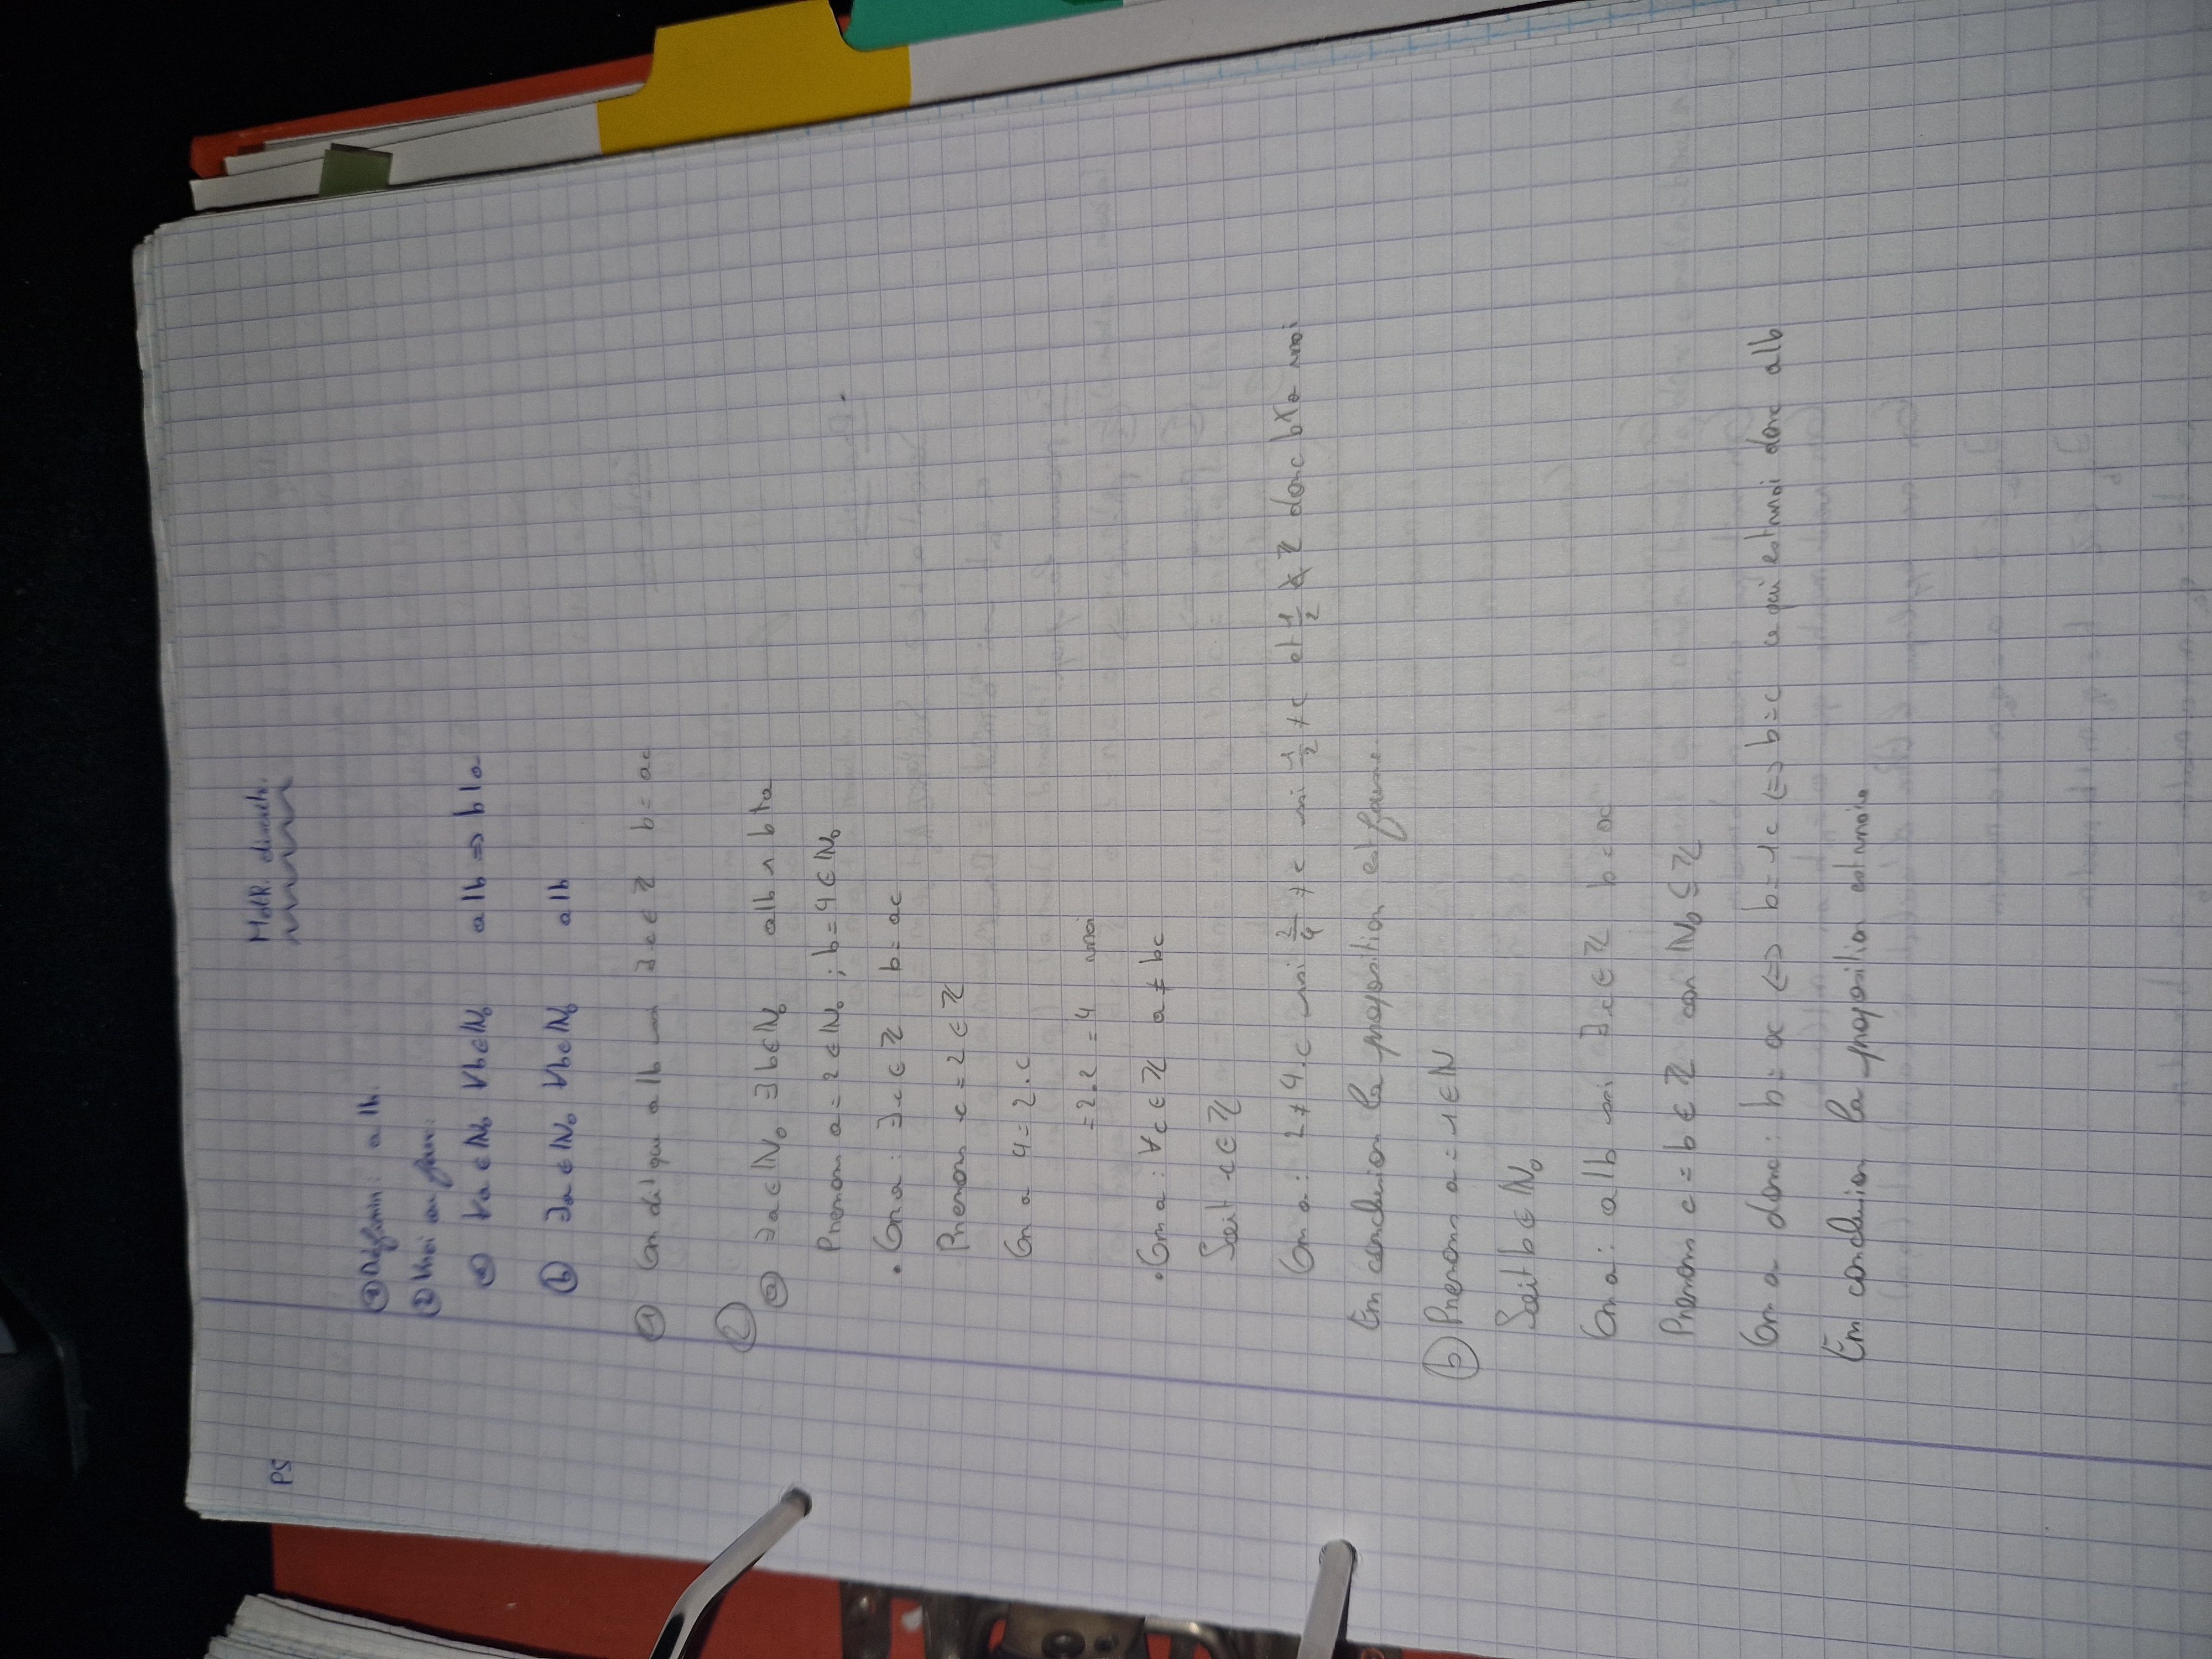 PS
Math. discrète.
① Définir : a | b.
② Vrai ou faux :
ⓐ ∀a ∈ ℕ₀ ∀b ∈ ℕ₀ a | b ⇒ b | a
ⓑ ∃a ∈ ℕ₀ ∀b ∈ ℕ₀ a | b
① On dit que a | b ssi ∃c ∈ ℤ b = ac
②
ⓐ ∃a ∈ ℕ₀ ∃b ∈ ℕ₀ a | b ∧ b ∤ a
Prenons a = 2 ∈ ℕ₀ ; b = 4 ∈ ℕ₀
• On a : ∃c ∈ ℤ b = ac
Prenons c = 2 ∈ ℤ
On a 4 = 2 . c
= 2.2 = 4 vrai
• On a : ∀c ∈ ℤ a ≠ bc
Soit c ∈ ℤ
On a : 2 ≠ 4.c ssi 2/4 ≠ c ssi 1/2 ≠ c et 1/2 ∉ ℤ donc b ∤ a vrai
En conclusion la proposition est fausse.
ⓑ Prenons a = 1 ∈ ℕ
Soit b ∈ ℕ₀
On a : a | b ssi ∃c ∈ ℤ b = ac
Prenons c = b ∈ ℤ car ℕ₀ ⊆ ℤ
On a donc : b = ac ⇔ b = 1c ⇔ b = c ce qui est vrai donc a | b
En conclusion la proposition est vraie